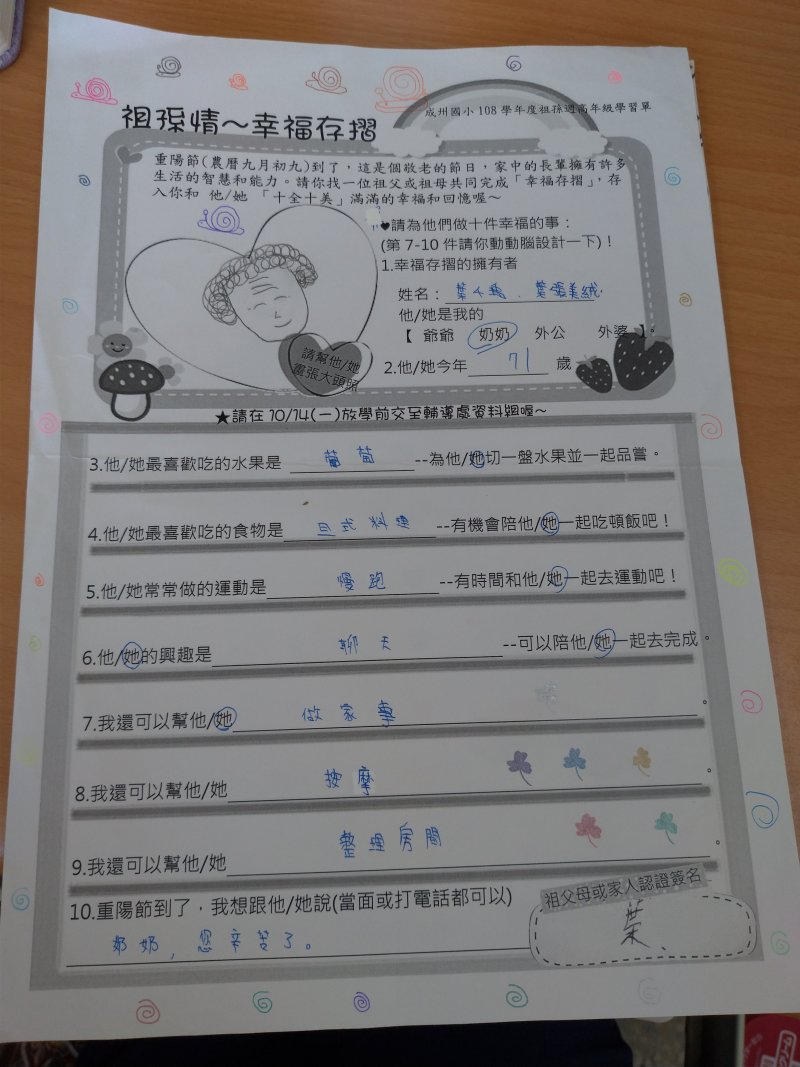 成州國小 108 學年度祖孫週高年級學習單
祖孫情～幸福存摺
重陽節(農曆九月初九)到了，這是個敬老的節日，家中的長輩擁有許多
生活的智慧和能力。請你找一位祖父或祖母共同完成「幸福存摺」，存
入你和 他/她 「十全十美」滿滿的幸福和回憶喔～
♥請為他們做十件幸福的事：
(第 7-10 件請你動動腦設計一下)！
1.幸福存摺的擁有者
姓名：葉
他/她是我的
【 爺爺 奶奶 外公 外婆 】。
2.他/她今年 71 歲
請幫他/她
畫張大頭照
★請在 10/14(一)放學前交至輔導處資料組喔~
3.他/她最喜歡吃的水果是 葡萄 --為他/她切一盤水果並一起品嘗。
4.他/她最喜歡吃的食物是 日式料理 --有機會陪他/她一起吃頓飯吧！
5.他/她常常做的運動是 慢跑 --有時間和他/她一起去運動吧！
6.他/她的興趣是 聊天 --可以陪他/她一起去完成。
7.我還可以幫他/她 做家事 。
8.我還可以幫他/她 按摩 。
9.我還可以幫他/她 整理房間 。
10.重陽節到了，我想跟他/她說(當面或打電話都可以)
奶奶，您辛苦了。
祖父母或家人認證簽名
葉